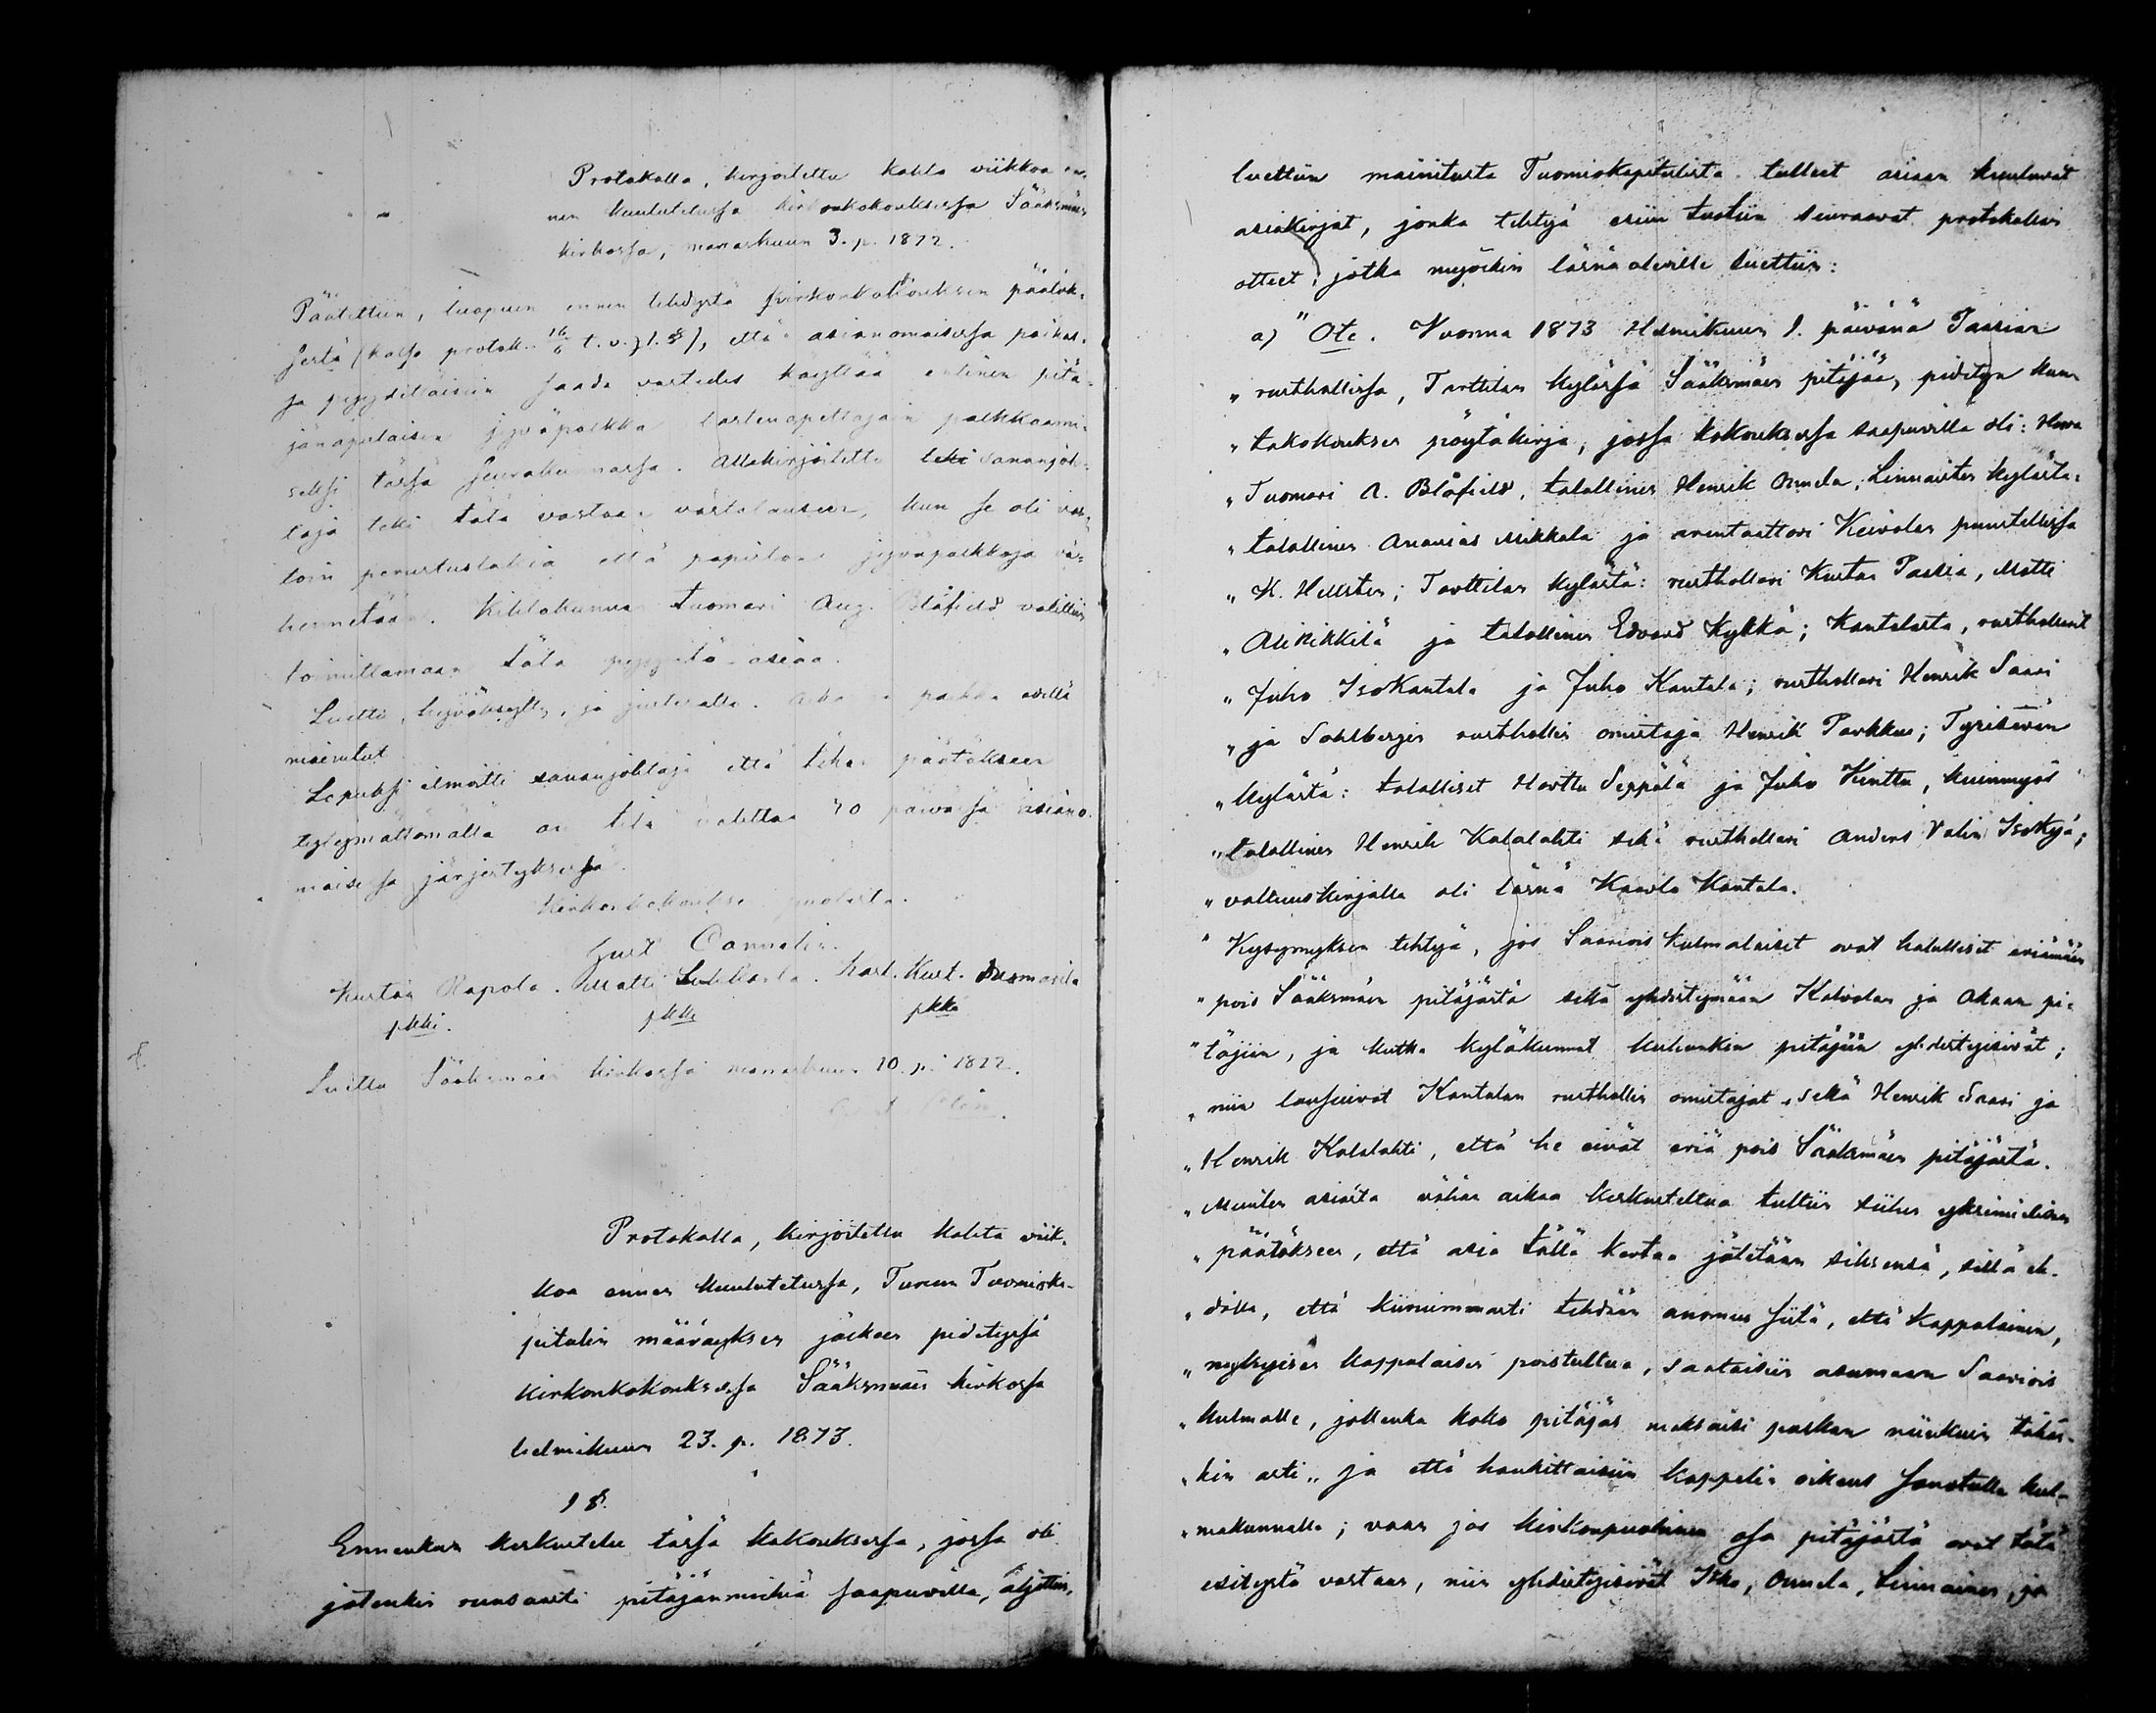 Protokolla, kirjoitettu kahta viikkoa en-
nen kuulutetussa kirkonkokouksessa Sääksmäen
kirkossa, marraskuun 3. p. 1872.
Päätettiin, luopuen ennen tehdystä kirkonkokouksen päätök-
sestä (katso protok. 16/6 t. v. 1. §), että asianomaisessa paikas-
sa pyydettäisiin saada vastedes käyttää entinen pitä-
jänapulaisen jyväpalkka lastenopettajain palkkaami-
seksi tässä seurakunnassa. Allekirjoitettu sananjoh-
taja teki tätä vastaan vastalauseen, kun se oli
toin perustuslakia että papiston jyväpalkkoja vä-
hennetään. Kihlakunnan tuomari Aug. Blåfield valittiin
toimittamaan tätä pyyntö-asiaa.
Luettu, hyväksytty, ja justeerattu. Aika ja paikka
mainitut
Lopuksi ilmoitti sananjohtaja että tähän päätökseen
tyytymättömällä on tilä valittaa 30 päivässä asiano-
maisessa järjestyksessä.
Kirkonkokouksen puolesta.
Gust Cannelin.
Kustaa Rapola. Matti Kust.
pkki. pkki pkka
Luettu Sääksmäen kirkossa marraskuun 10. p. 1872.
Protokolla, kirjoitettu kahta viik-
koa ennen kuulutetussa, Turun Tuomioka-
pitulin määräyksen jälkeen pidetyssä
kirkonkokouksessa Sääksmäen kirkossa
helmikuun 23. p. 1873.
1 §.
Ennenkun keskustelu tässä kokouksessa, jossa oli
jotenkin runsaasti pitäjänmiehiä saapuvilla, aljettiin,
luettiin mainitusta Tuomiokapitulista tulleet asiaan kuuluvat
asiakirjat, jonka tehtyä esiin tuotiin seuraavat protokollan
otteet, jotka myöskin läsnä oleville luettiin:
a) "Ote. Vuonna 1873 Helmikuun 1. päivänä Passian
„ rusthollissa, Tarttilan kylässä Sääksmäen pitäjää, pidetyn kun-
„ takokouksen pöytäkirja, jossa kokouksessa saapuvilla oli: Herra
„ Tuomari A. Blåfield, talollinen Henrik Annela, Linnaisten kylästä:
„ talollinen Ananias Mikkola ja arentaattori Keivolan puustellissa
„ K. Hellsten; Tarttilan kylästä: rusthollari Kustaa Passia, Matti
„ Alikikkilä ja talollinen Edvard Kykkä; Kantalasta, rusthollarit
„ Juho Isokantala ja Juho Kantala; rusthollari Henrik Saari
„ ja Sohlbergin rusthollin omistaja Henrik Parkkus; Tyrisevän
„ kylästä: talolliset Herttu Seppälä ja Juho Kinttu, kuinmyös
„ talollinen Henrik Kalalahti sekä rusthollari Anders Valin Isokyä;
„ valtuuskirjalla oli läsnä Kaarlo Kantala.
" Kysymyksen tehtyä, jos Saarioiskulmalaiset ovat halulliset eriämään
" pois Sääksmäen pitäjästä sekä yhdistymään Kalvolan ja Akaan pi-
" täjiin, ja kutka kyläkunnat kuhunkin pitäjään yhdistyisivät;
„ niin lausuivat Kantalan rusthollin omistajat, sekä Henrik Saari ja
„ Henrik Kalalahti, että he eivät eriä pois Sääksmäen pitäjästä.
„ Muuten asiasta vähän aikaa keskusteltua tultiin siihen yksimieliseen
„ päätökseen, että asia tällä kertaa jätetään sillensä, sillä eh-
„ dolla, että kiiruimmasti tehdään anomus siitä, että kappalainen,
„ nykyisen kappalaisen poistultua, saataisiin asumaan Saariois
„ kulmalle, jollenka koko pitäjäs maksaisi palkan niinkuin tähän-
„ kin asti „ ja että hankittaisiin kappelin oikeus sanotulle kul-
„ makunnalle; vaan jos kirkonpuolinen osa pitäjästä ovat tätä
esitystä vastaan, niin yhdistyisivät Isko, Annela, Linnainen, ja